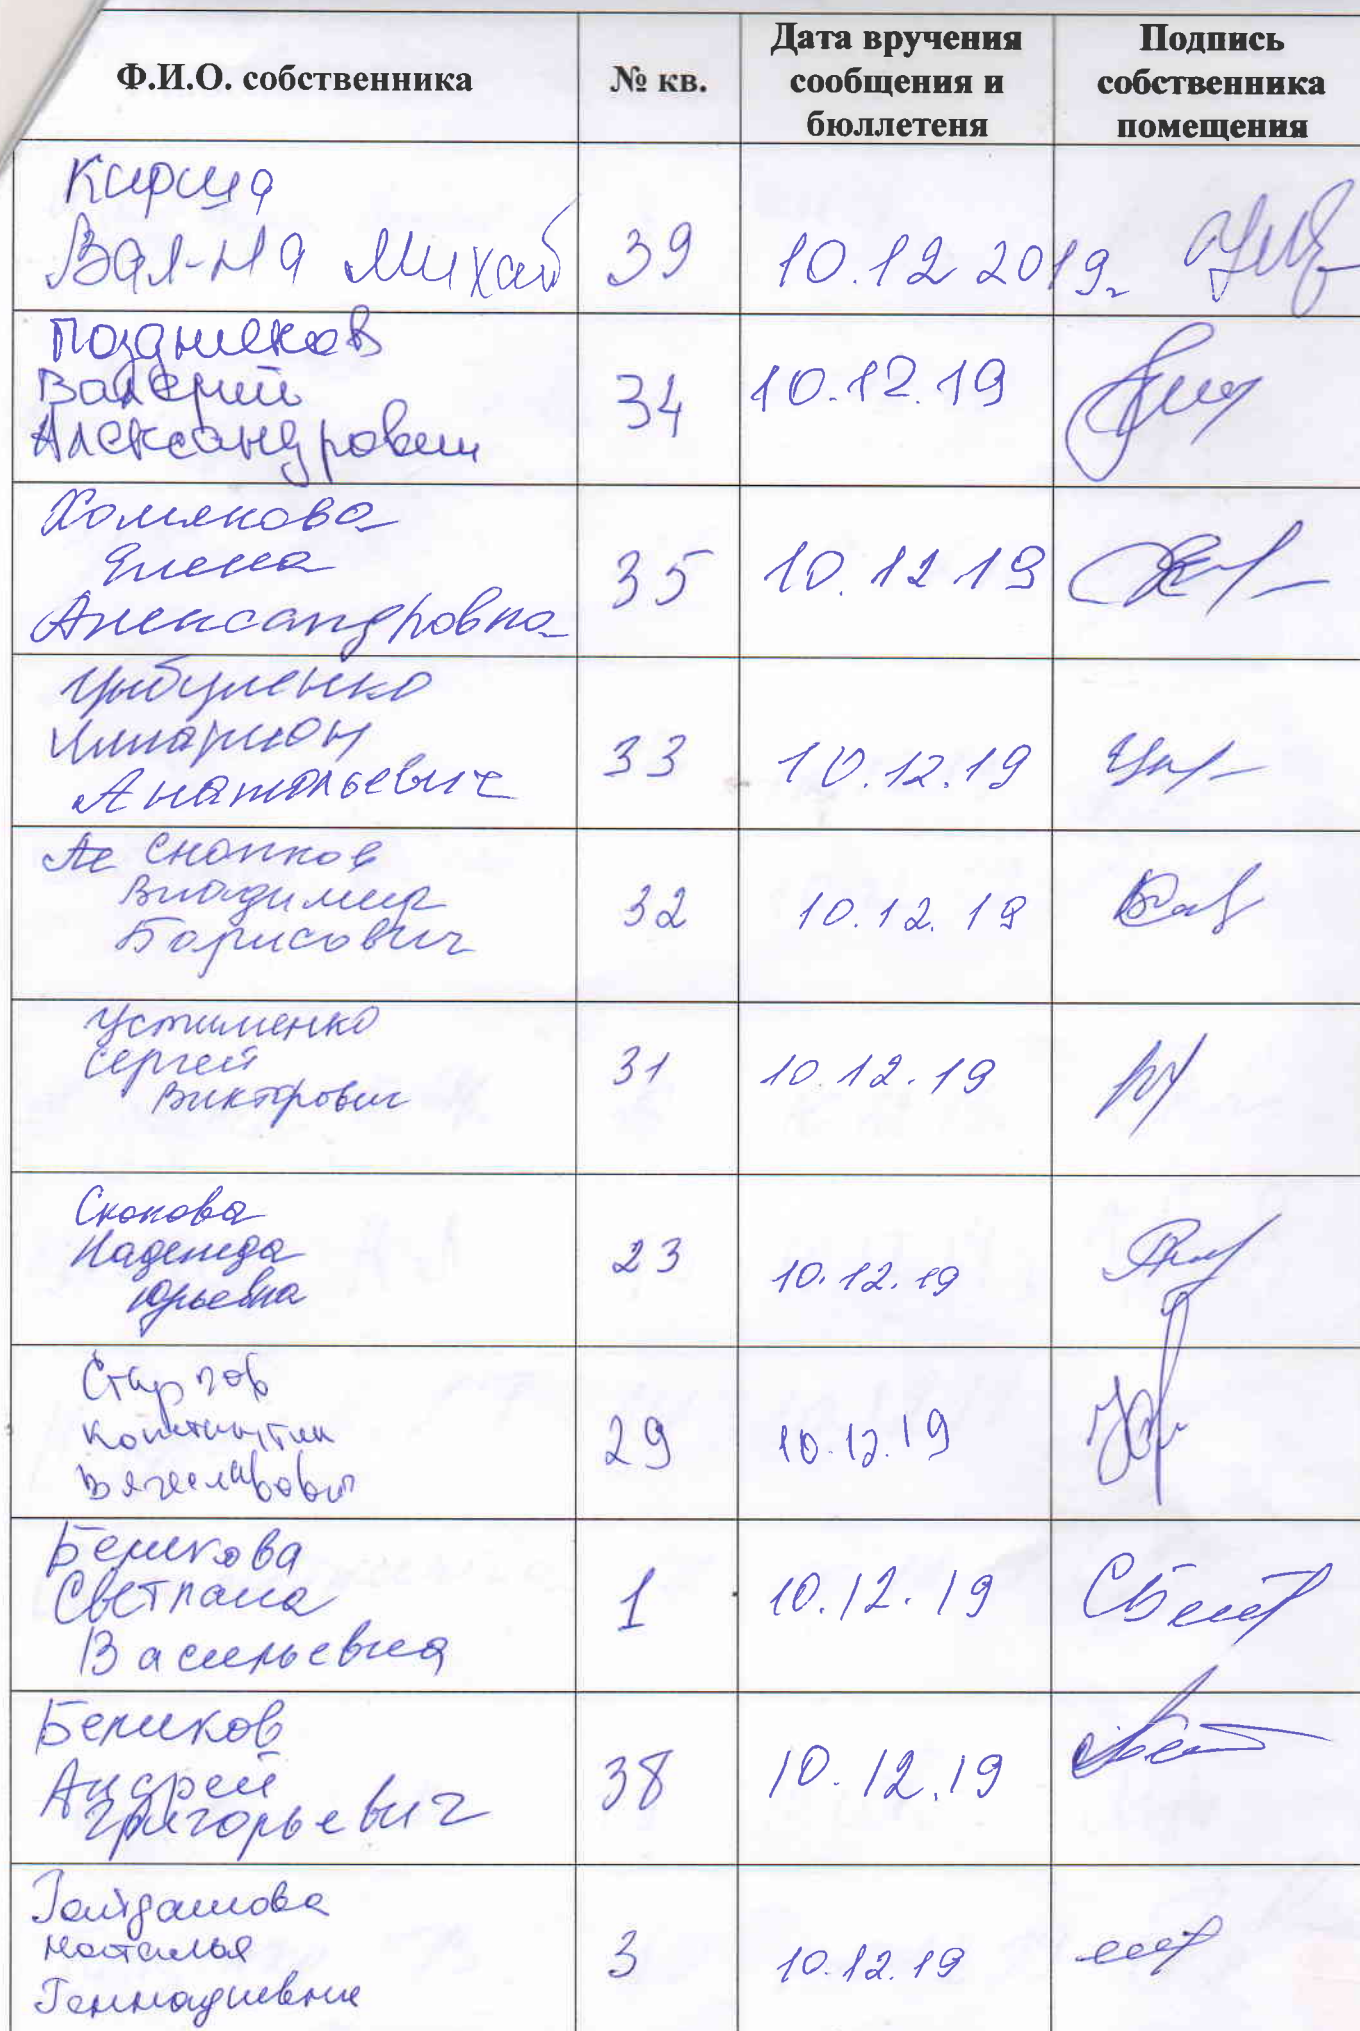 Ф.И.О. собственника
№ кв.
Дата вручения
сообщения и
бюллетеня
Подпись
собственника
помещения
Вал-на Михай
39
10.12 2019г
Поздняков
Валерий
Александрович
34
10.12.19
Хомякова
Елена
Александровна
35
10.12 19
Цыбуленко
Илларион
Анатольевич
33
10.12.19
Снопков
Владимир
Борисович
32
10.12.19
Устименко
Сергей
Викторович
31
10.12.19
Скопова
Надежда
Юрьевна
23
10.12.19
Константин
Вячеславович
29
10.12.19
Беликова
Светлана
Васильевна
1
10.12.19
Беликов
Андрей
Григорьевич
38
10.12.19
Гайдашова
Наталья
Геннадиевна
3
10.12.19